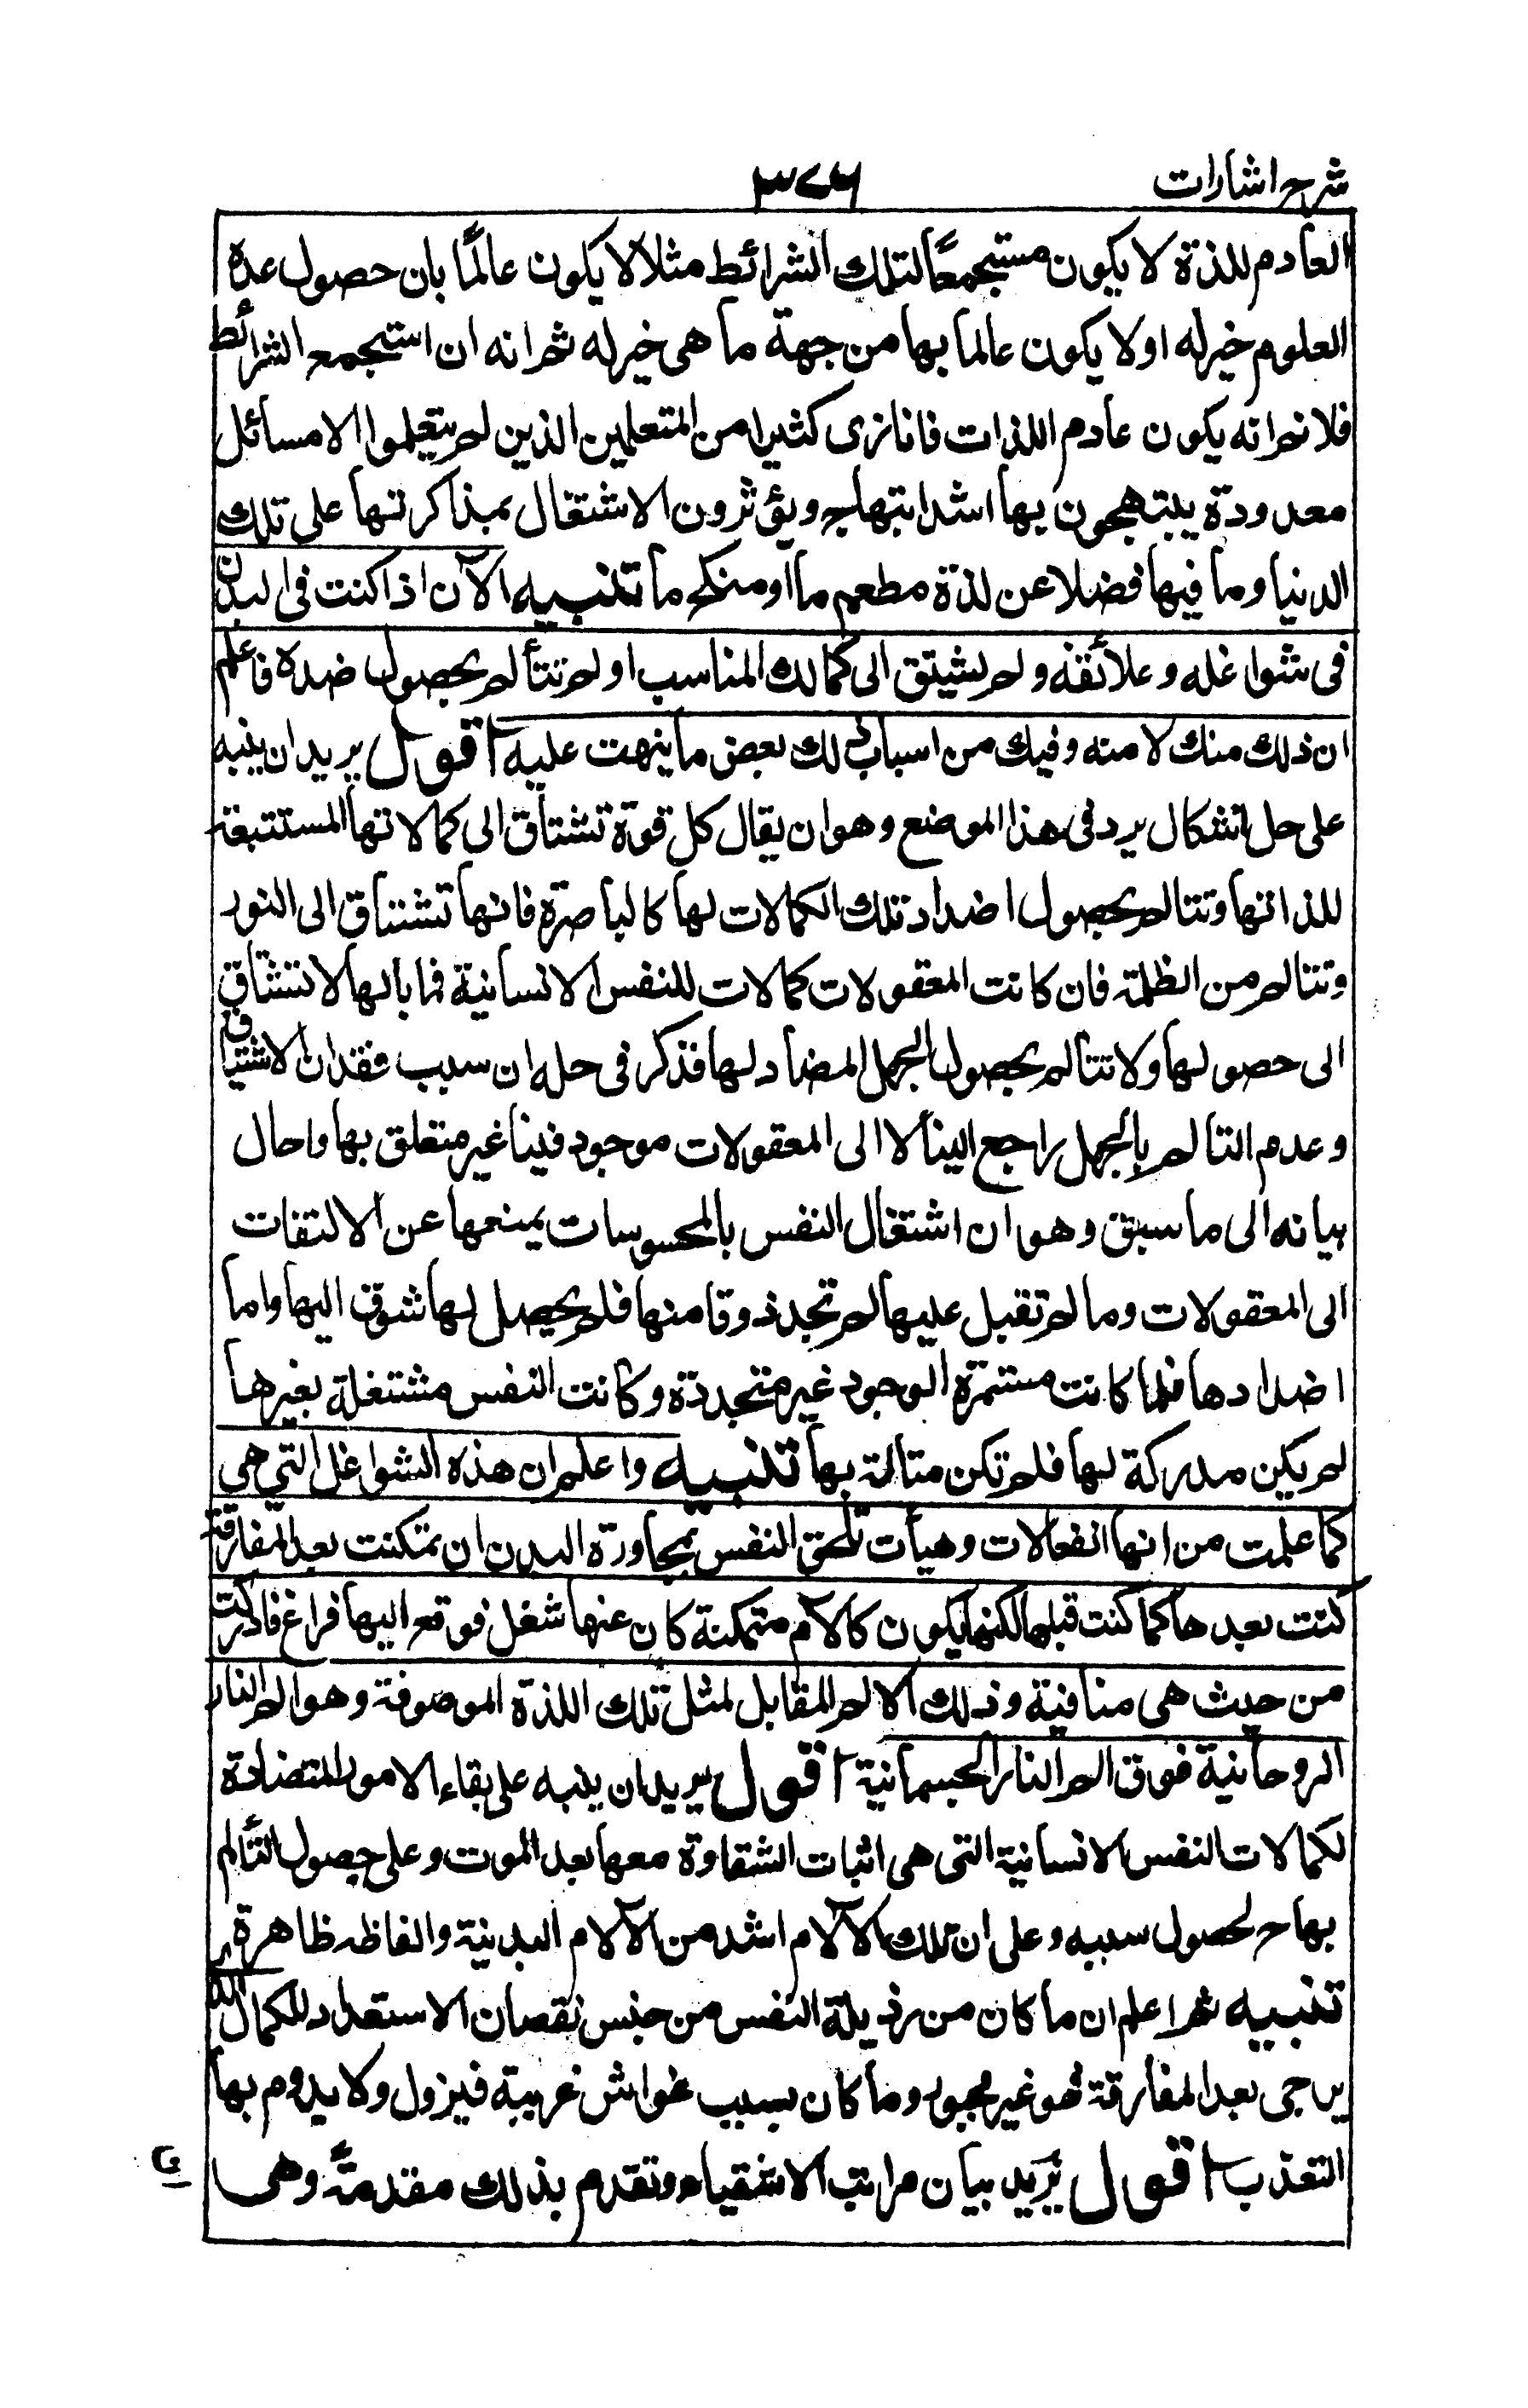 شرح اشارات
٣٧٤
العادم للذة لا يكون مستجمعًا لتلك الشرائط مثلا لا يكون عالمًا بان حصول عدة
العلوم خير له او لا يكون عالما بها من جهة ما هى خير له ثم انه ان استجمع الشرائط
فلا نم انه يكون عادم اللذات فانا نرى كثيرا من المتعلمين الذين لم يتعلموا الا مسائل
معدودة يبتهجون بها اشد ابتهاج ويؤثرون الاشتغال بمذاكرتها على تلك
الدنيا وما فيها فضلا عن لذة مطعم ما او منكح ما تنبيه الآن اذا كنت فى البدن
فى شواغله وعلائقه ولم يشتق الى كمالك المناسب او لم تتألم بحصول ضده فاعلم
ان ذلك منك لا منه وفيك من اسباب ذلك بعض ما ينهت عليه اقول يريد ان ينبه
على حل اشكال يرد فى هذا الموضع وهو ان يقال كل قوة تشتاق الى كمالاتها المستتبعة
للذاتها وتتالم بحصول اضداد تلك الكمالات لها كالباصرة فانها تشتاق الى النور
وتتالم من الظلمة فان كانت المعقولات كمالات للنفس الانسانية فما بالها لا تشتاق
الى حصولها ولا تتالم بحصول الجهل المضاد لها فذكر فى حله ان سبب فقدان الاشتياق
وعدم التالم بالجهل راجع الينا لا الى المعقولات موجود فينا غير متعلق بها واحال
بيانه الى ما سبق وهو ان اشتغال النفس بالمحسوسات يمنعها عن الالتفات
الى المعقولات وما لم تقبل عليها لم تجد ذوقا منها فلم يحصل لها شوق اليها واما
اضدادها فلما كانت مستمرة الوجود غير متجددة وكانت النفس مشتغلة بغيرها
لم يكن مدركة لها فلم تكن متالمة بها تنبيه واعلم ان هذه الشواغل التى هى
كما علمت من انها انفعالات وهيأت تلحق النفس بمجاورة البدن ان تمكنت بعد المفارقة
كنت بعدها كما كنت قبلها لكنها يكون كالآم متمكنة كان عنها شغل فوقع اليها فراغ فادركت
من حيث هى منافية وذلك الالم المقابل لمثل تلك اللذة الموصوفة وهو الم النار
الروحانية فوق الم النار الجسمانية اقول يريد ان ينبه على بقاء الامور المتضادة
لكمالات النفس الانسانية التى هى اثبات الشقاوة معها بعد الموت وعلى حصول التألم
بها ح لحصول سببه وعلى ان تلك الآلام اشد من الآلام البدنية والفاظه ظاهرة
تنبيه ثم اعلم ان ما كان من رذيلة النفس من جنس نقصان الاستعداد للكمال الذى
يرجى بعد المفارقة فهو غير مجبور وما كان بسبب غواش غريبة فيزول ولا يدوم بها
التعذب اقول يريد بيان مراتب الاشقياء وتقدم بذلك مقدمة وهى